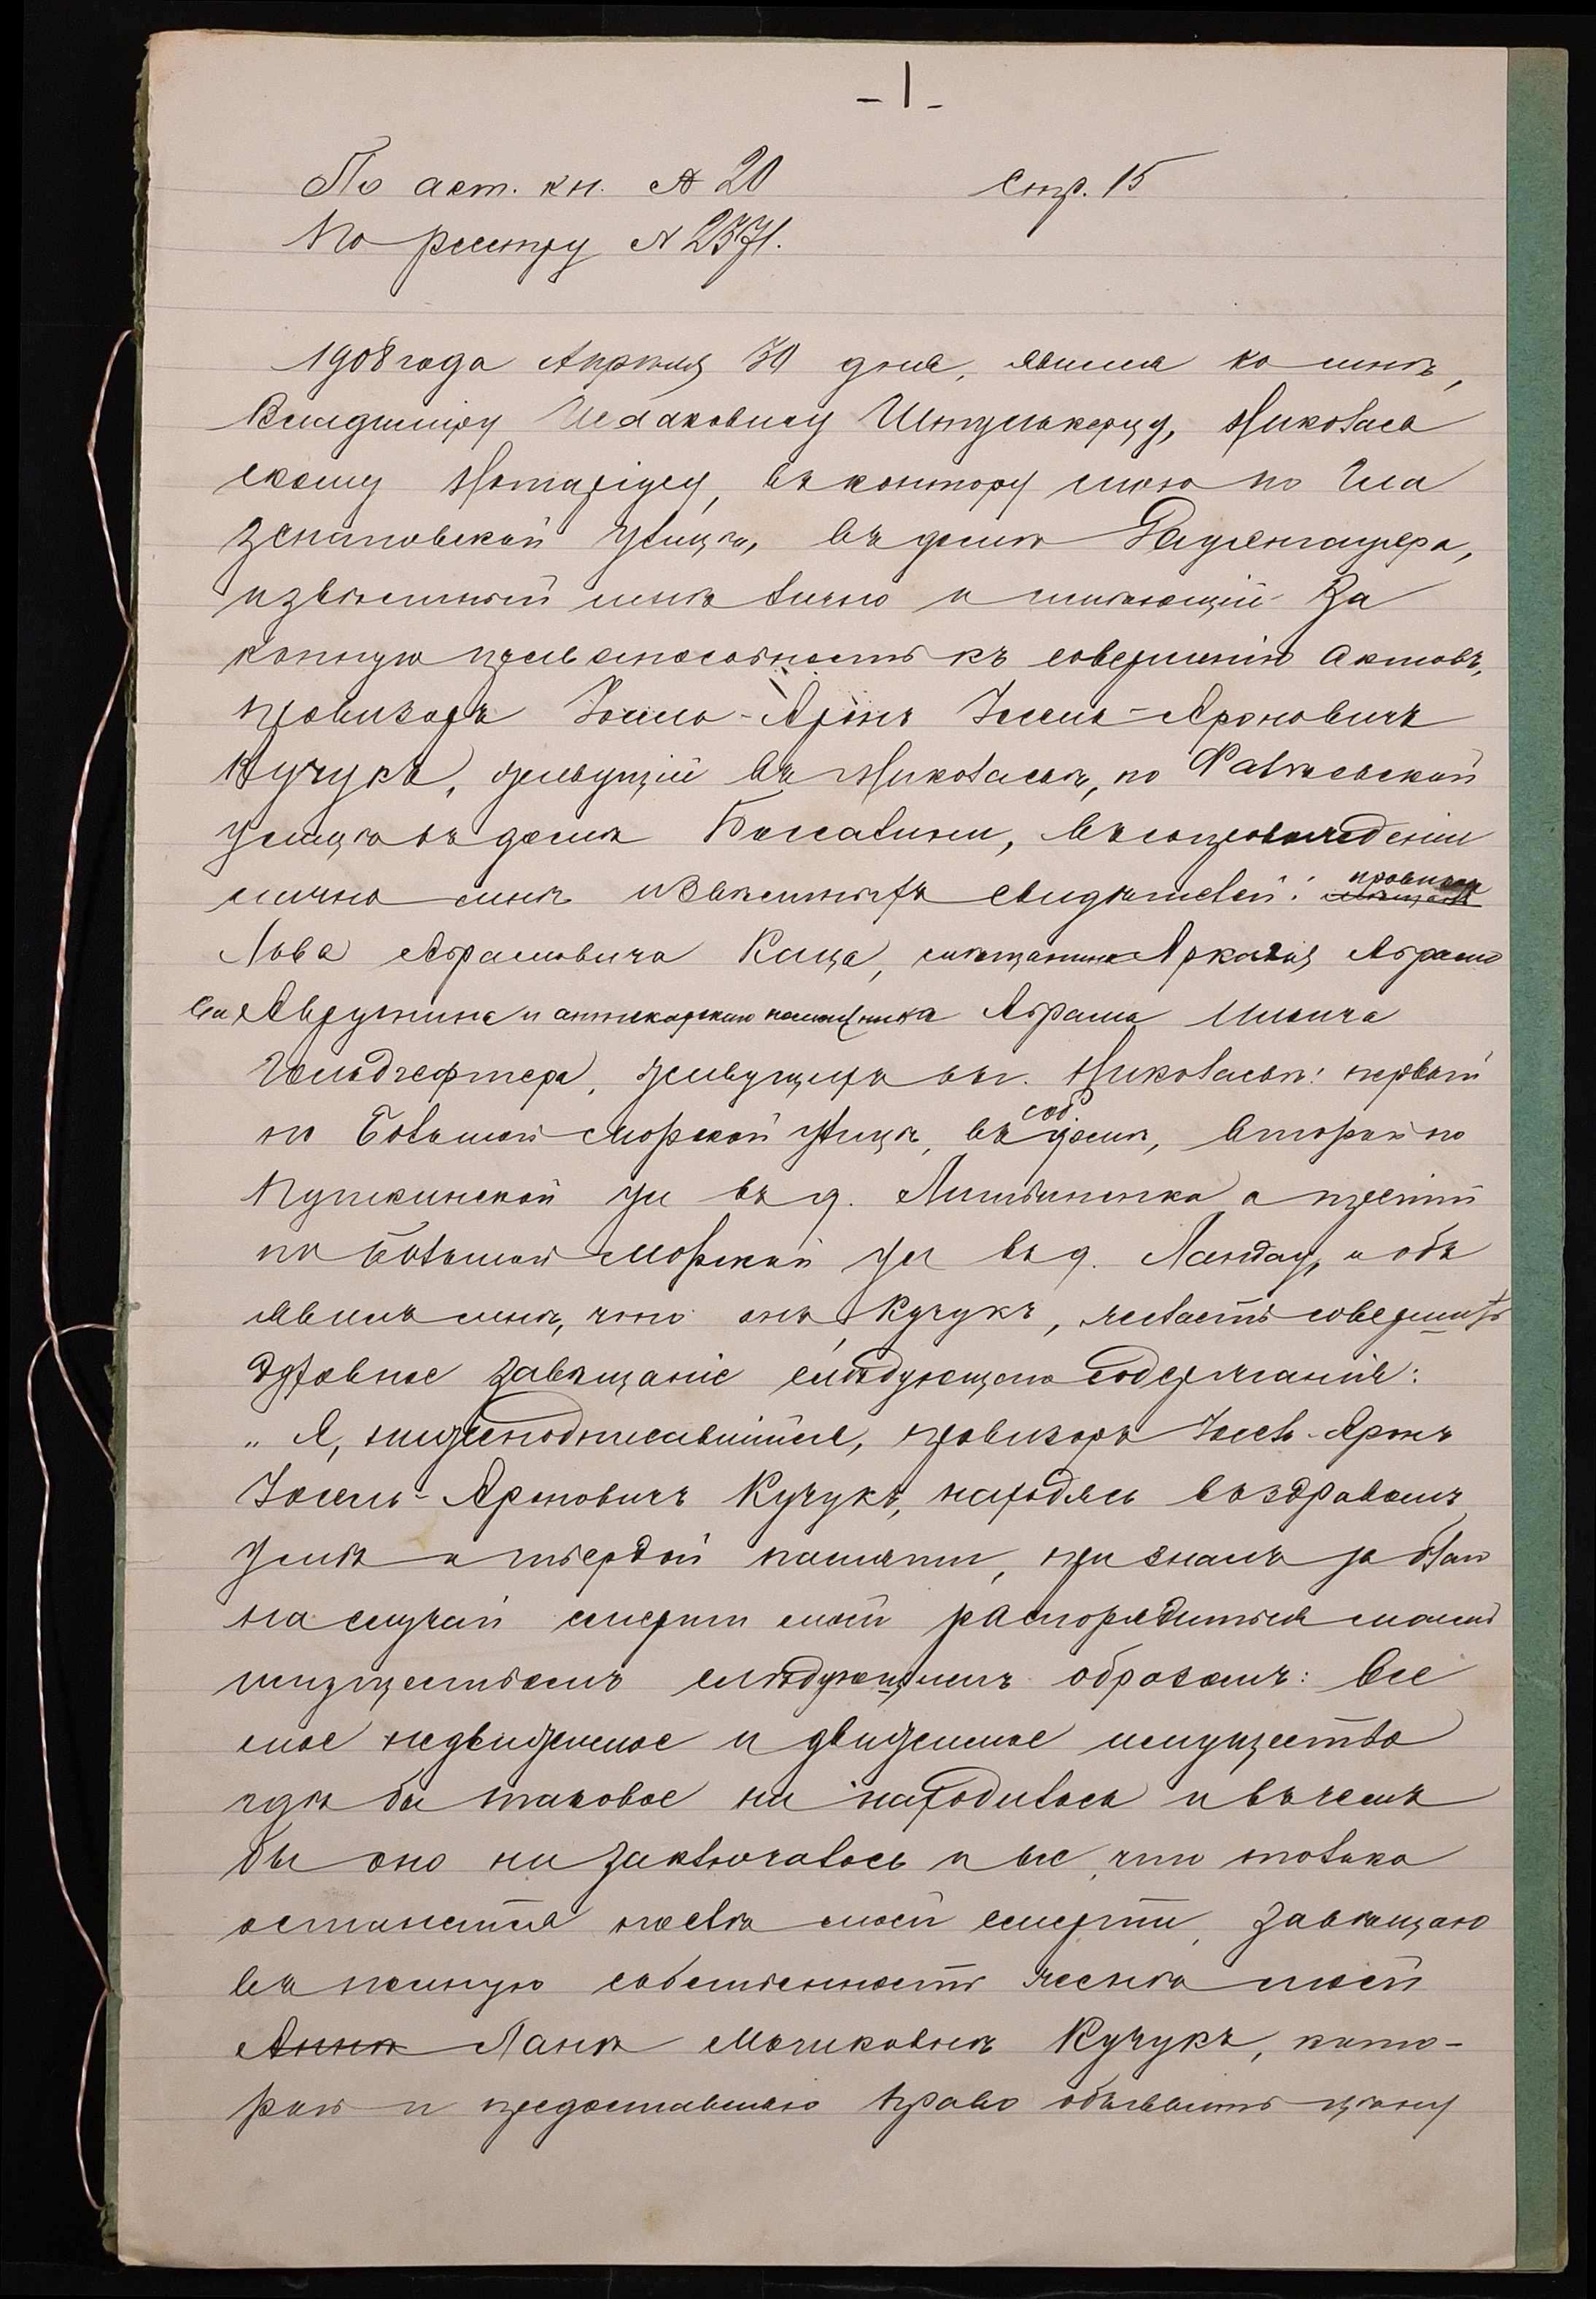 - 1 -
По акт. кн. № 20 Стр. 15
По реестру № 2371.
1908 года Апрѣля 30 дня, явился ко мнѣ,
Владиміру Исааковичу Николаев
скому Нотаріусу, въ контору мою по Гла
зенаповской улицѣ, въ домѣ
извѣстный мнѣ лично и имѣющій за
конную правоспособность къ совершенію актовъ,
провизоръ Іосель-Аронъ Іосель-Ароновичъ
Кучукъ, живущій въ Николаевѣ, по Фалѣевской
улицѣ въ домѣ въ сопровожденіи
лично мнѣ извѣстныхъ свидѣтелей: провизора
Льва Абрамовича Каца, мѣщанина Аркадія Абрамо
ва и аптекарскаго помощника Абрама Ильича
Гольдгефтера, живущихъ въ г. Николаевѣ: первый
по Большой Морской улицѣ, въ соб. домѣ, второй по
Пушкинской ул въ д. а третій
по Большой Морской ул въ д. Ландау, и объ
явилъ мнѣ, что онъ, Кучукъ, желаетъ совершить
духовное завѣщаніе слѣдующаго содержанія:
„Я, нижеподписавшійся, провизоръ Іосель-Аронъ
Іосель-Ароновичъ Кучукъ, находясь въ здравомъ
умѣ и твердой памяти, призналъ за благо
на случай смерти моей распорядиться моимъ
имуществомъ слѣдующимъ образомъ: все
мое недвижимое и движимое имущество
гдѣ бы таковое ни находилось и въ чемъ
бы оно ни заключалось и все, что только
останется послѣ моей смерти, завѣщаю
въ полную собственность женѣ моей
Аннѣ Ханѣ Кучукъ, кото-
рой и предоставляю право объявить цѣну